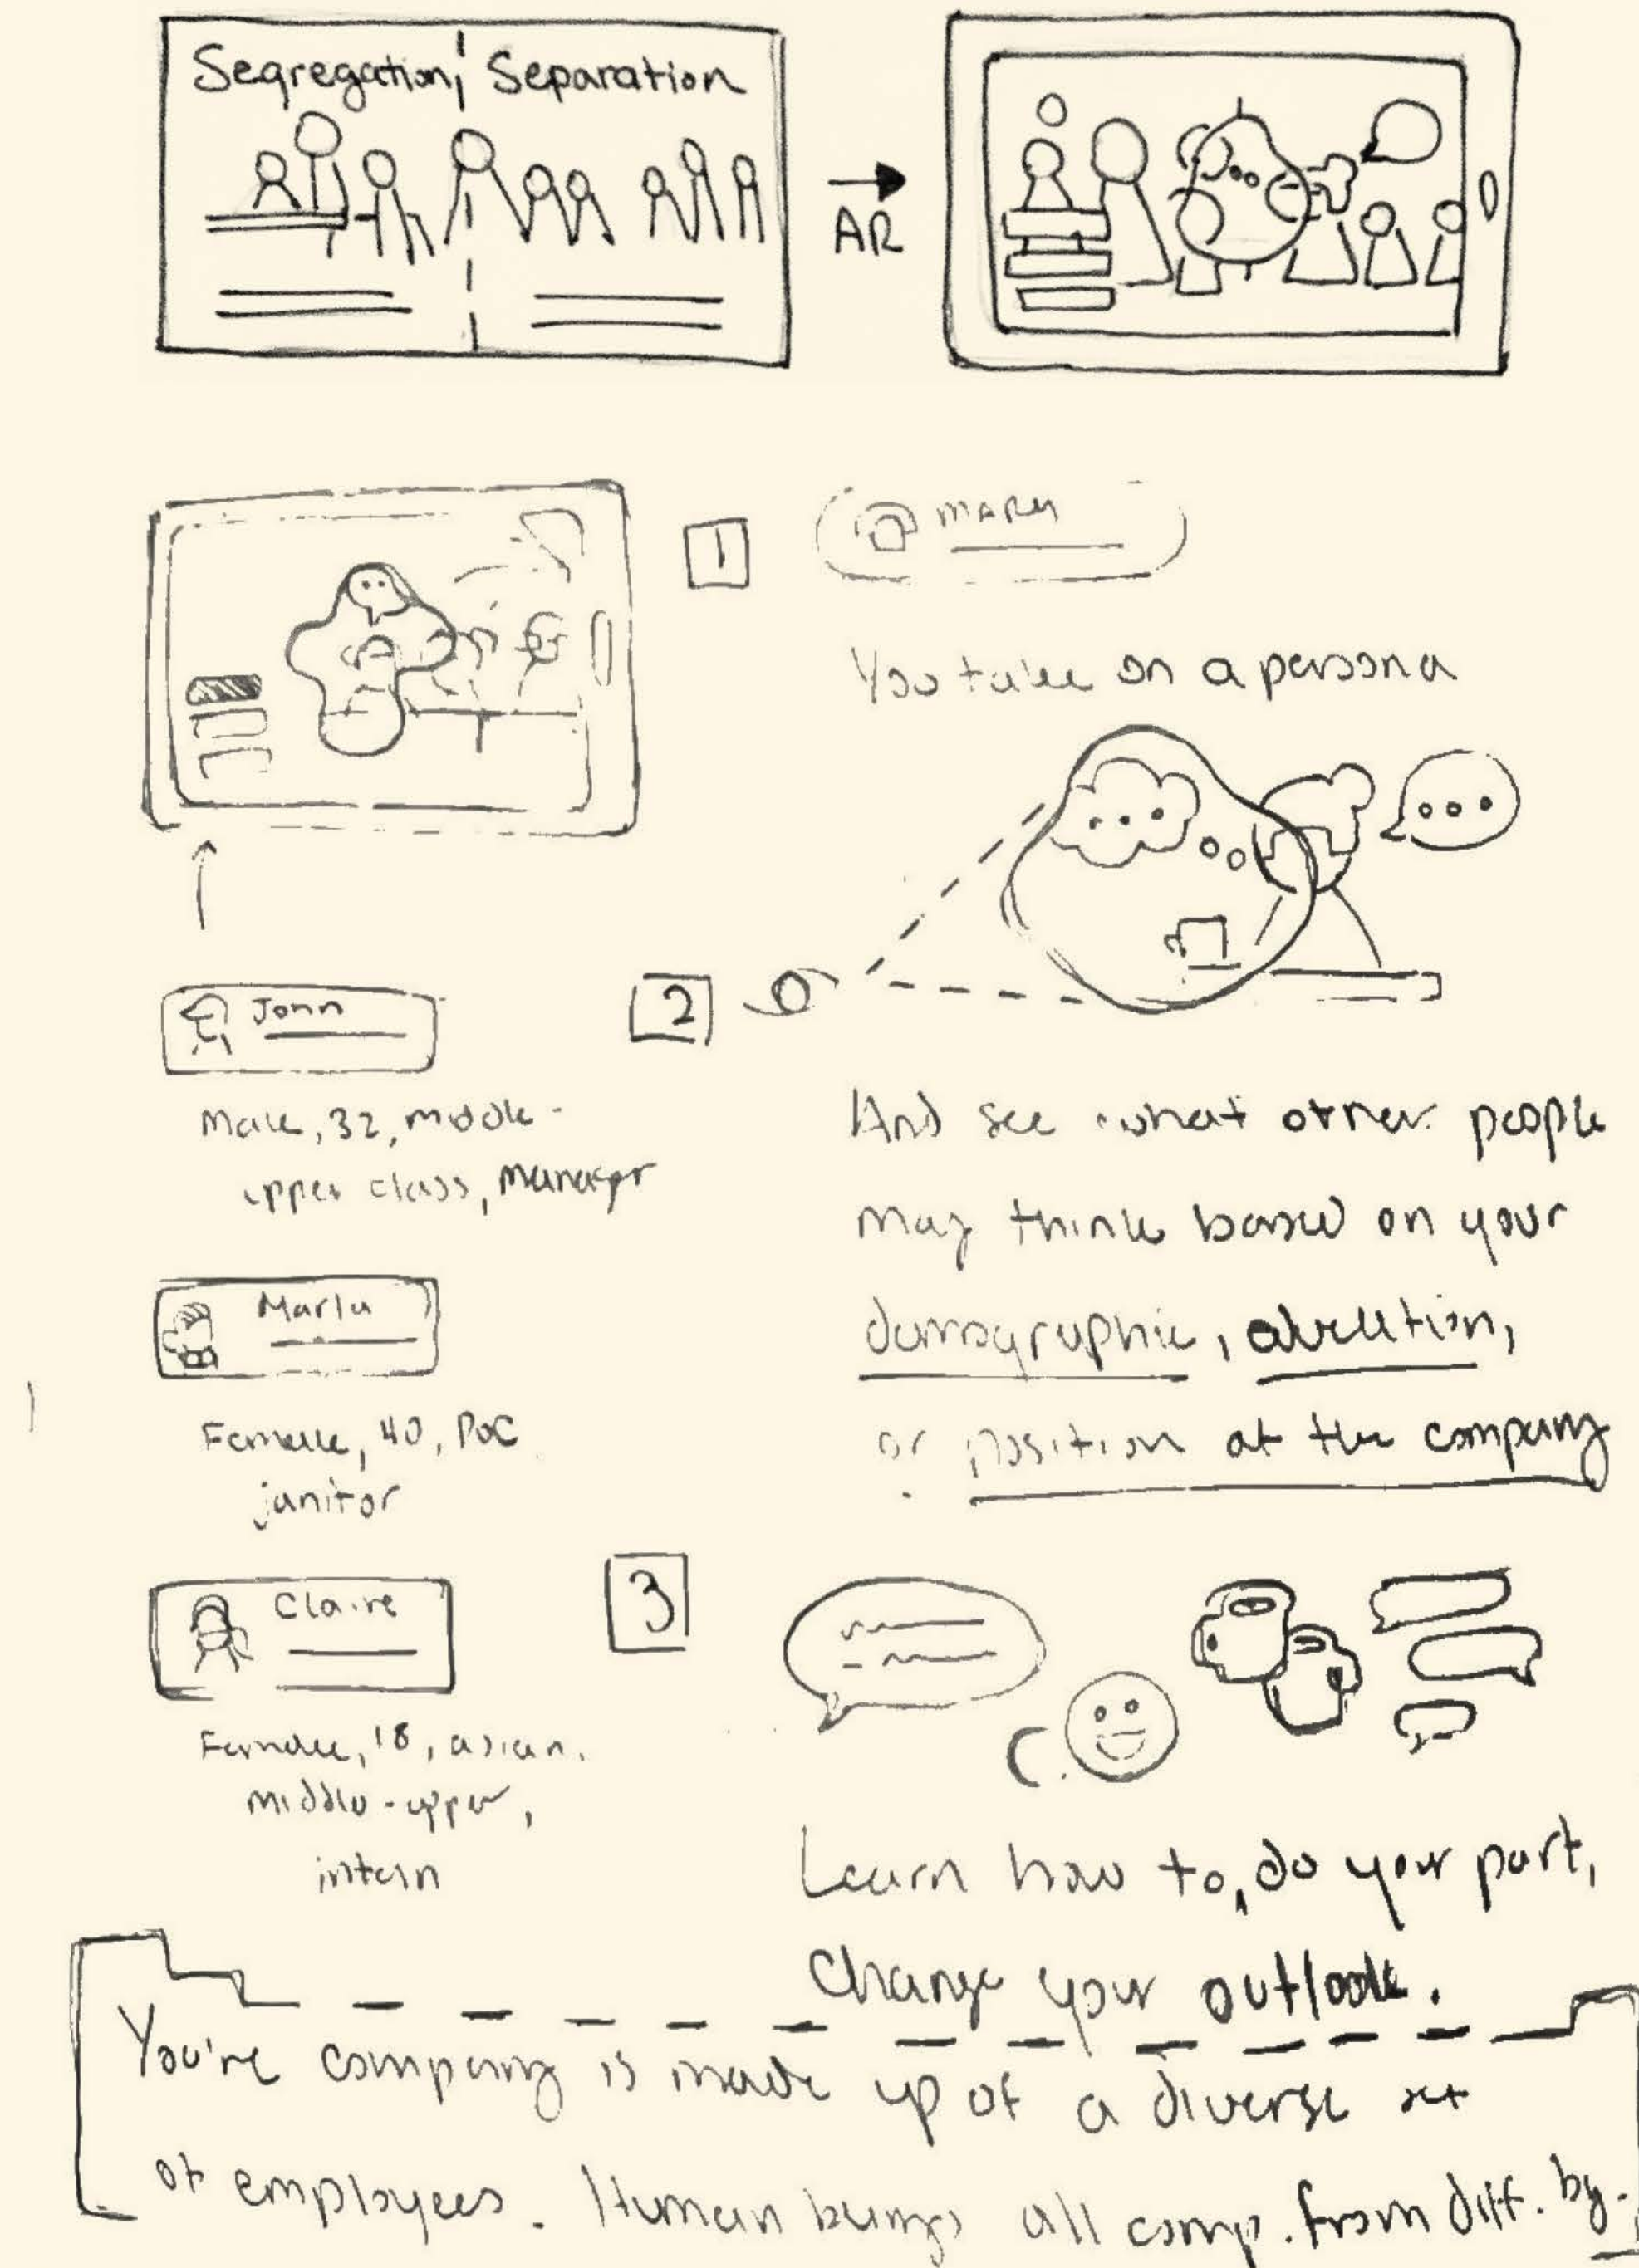 Segregation, Separation
AR
1
You take on a persona
2
John
Male, 32, middle-
upper class, manager
And see what other people
may think based on your
demographic,
or position at the company
Marla
Female, 40, POC
janitor
3
Claire
Female, 18, asian,
middle-upper,
intern
Learn how to, do your part,
Change your outlook.
You're company is made up of a diverse set
of employees. Human beings all from diff.